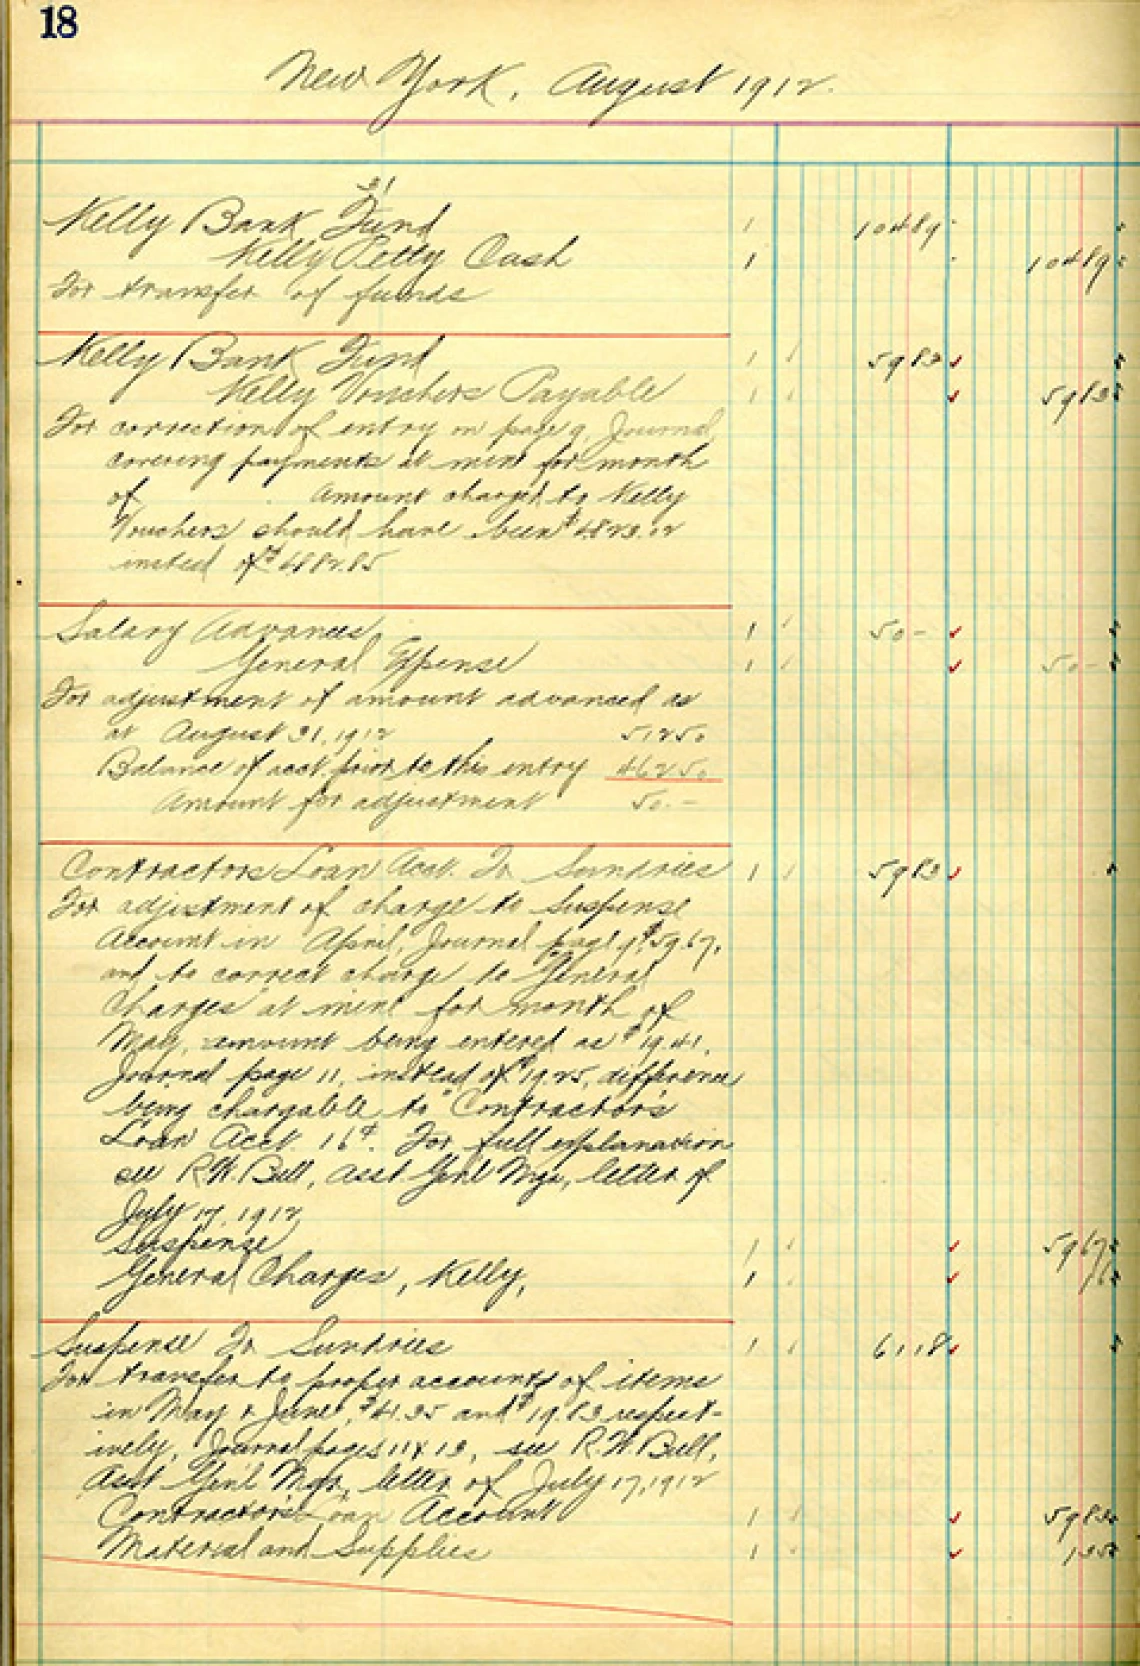 18
New York, August 1912.
31
Kelly Bank Fund 1 10489
Kelly Petty Cash 1 10489
For transfer of funds
Kelly Bank Fund 1 5983
Kelly Vouchers Payable 1 5983
For correction of entry on page 9, Journal
covering payments at mine for month
of Amount charged to Kelly
Vouchers should have been $4823.02
instead of $4882.85
Salary Advances, 1 50-
General Expense 1 50-
For adjustment of amount advanced as
at August 31, 1912 512 50
Balance of acct. prior to this entry 462 50
Amount for adjustment 50.-
Contractors Loan Acct. To Sundries 1 5983
For adjustment of charge to Suspense
Account in April, Journal page 9, $59.67,
and to correct charge to "General
Charges" at mine for month of
May, amount being entered as $19.41,
Journal page 11, instead of $19.25, difference
being chargable to "Contractor's
Loan Acct. 16¢. For full explanation
see R.W. Bull, Asst Gen'l Mgr, letter of
July 17, 1912
Suspense 1 5967
General Charges, Kelly, 1 16
Suspense To Sundries 1 6118
For transfer to proper accounts of items
in May & June, $41.35 and $19.83 respect-
ively, Journal pages 11 & 13, see R.W. Bull,
Asst Gen'l Mgr, letter of July 17, 1912
Contractor's Loan Account 1 5983
Material and Supplies 1 135